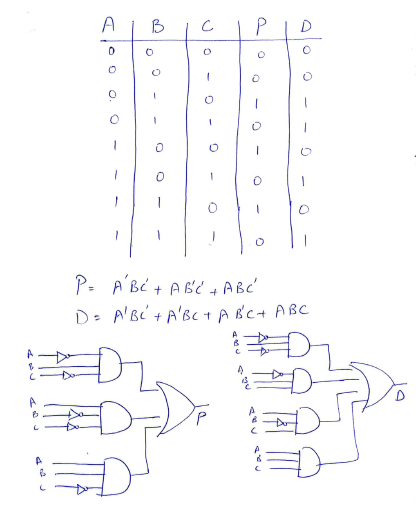 A B C P D
0 0 0 0 0
0 0 1 0 0
0 1 0 1 1
0 1 1 0 1
1 0 0 1 0
1 0 1 0 1
1 1 0 1 0
1 1 1 0 1
P= A'BC' + AB'C' + ABC'
D= A'BC' + A'BC + AB'C + ABC
A
B
C
A
B
C
A
B
C
P
A
B
C
A
B
C
A
B
C
A
B
C
D